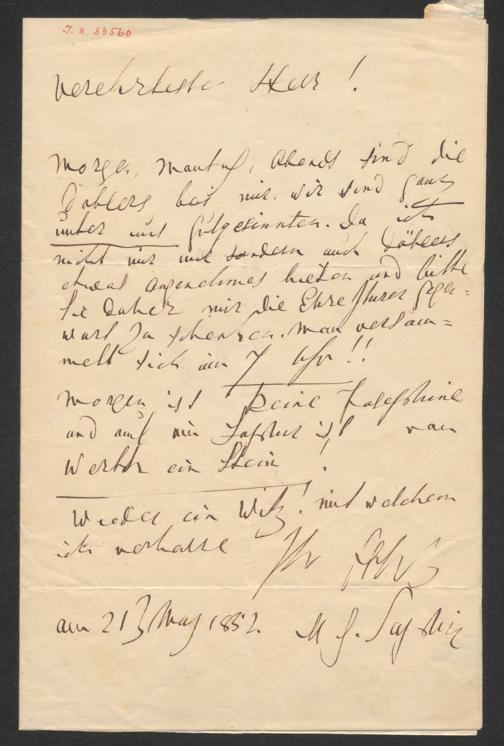 I. N. 53560
Verehrtester Herr!
Morgen, Abends sind die
Döblers bei mir. wir sind ganz
unter uns Gutgesinnten. Da ich
nicht nur mir sondern auch Döblers
etwas angenehmes bieten und bitte
Sie daher mir die Ehre Ihrer Gegen-
wart zu schenken. man versam-
melt sich um 7 Uhr!!
Morgen ist keine Josephine
und auf ein Saphir ist von
Werth ein Stein!
Wieder ein Witz! mit welchem
ich verharre Ihr
am 21 May 1852. M G. Saphir